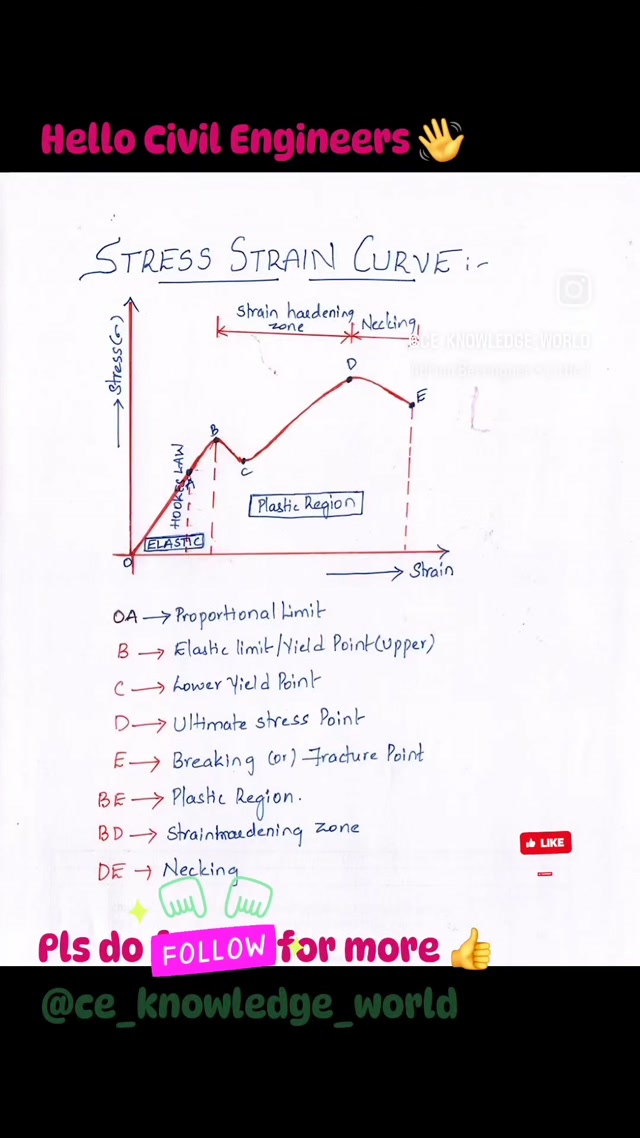 Hello Civil Engineers 👋
STRESS STRAIN CURVE :-
Strain hardening zone
Necking
@CE_KNOWLEDGE_WORLD
Stress(σ)
D
E
B
C
A
HOOKES LAW
Plastic Region
ELASTIC
O
Strain
OA → Proportional Limit
B → Elastic limit/Yield Point(Upper)
C → Lower Yield Point
D → Ultimate stress Point
E → Breaking (or) Fracture Point
BE → Plastic Region.
BD → Strainhardening zone
DE → Necking
LIKE
Pls do FOLLOW for more 👍
@ce_knowledge_world